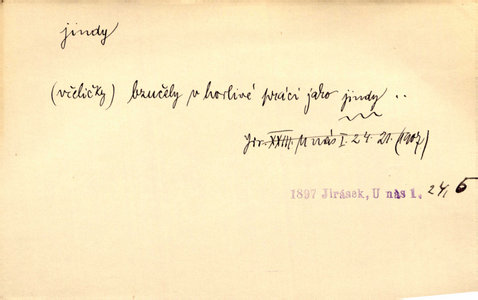 jindy
(včeličky) bzučely v horlivé práci jako jindy ..
Jir. XXIII. U nás I. 24. 21. (1907)
1897 Jirásek, U nás 1. 24, 5